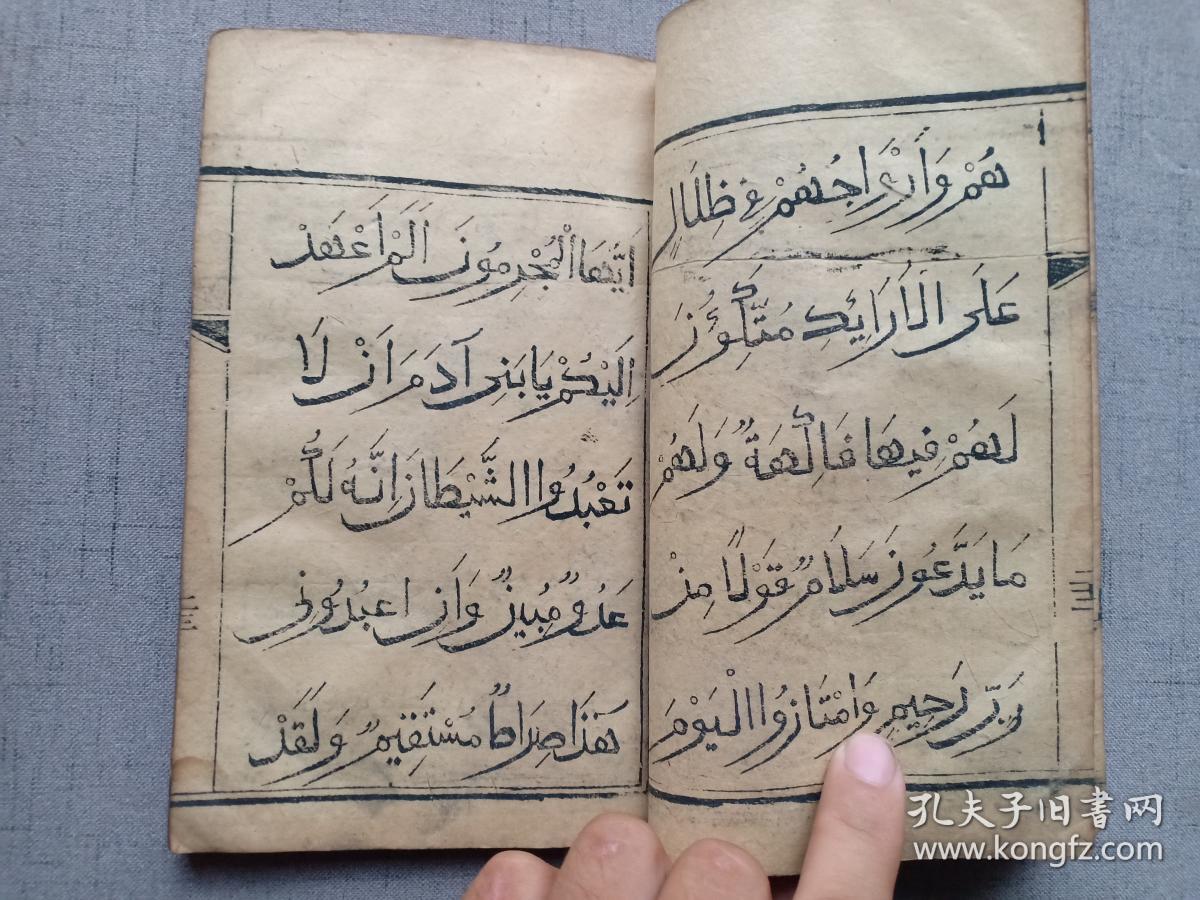 هُمْ وَأَزْوَاجُهُمْ فِي ظِلَالٍ
عَلَى الْأَرَائِكِ مُتَّكِؤُنَ
لَهُمْ فِيهَا فَاكِهَةٌ وَلَهُمْ
مَا يَدَّعُونَ سَلَامٌ قَوْلًا مِنْ
رَبٍّ رَحِيمٍ وَامْتَازُوا الْيَوْمَ
اَيُّهَا الْمُجْرِمُونَ اَلَمْ اَعْهَدْ
اِلَيْكُمْ يَا بَنِى آدَمَ اَنْ لَا
تَعْبُدُوا الشَّيْطَانَ اِنَّهُ لَكُمْ
عَدُوٌّ مُبِينٌ وَاَنِ اعْبُدُونِى
هَذَا صِرَاطٌ مُسْتَقِيمٌ وَلَقَدْ
孔夫子旧书网
www.kongfz.com